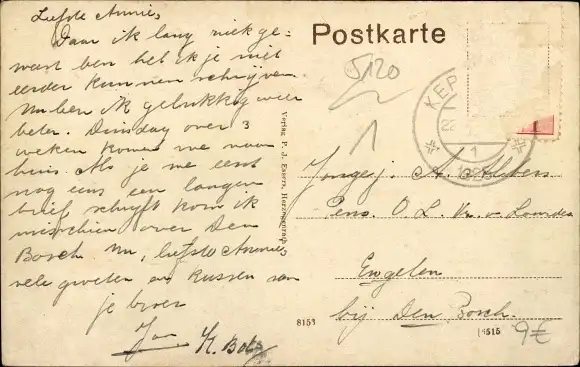 Liefste Annie,
Daar ik lang ziek ge-
weest ben heb ik je niet
eerder kunnen schrijven.
Nu ben ik gelukkig weer
beter. Dinsdag over 3
weken komen we naar
huis. Als je me eerst
nog eens een langen
brief schrijft kom ik
misschien over Den
Bosch. Nu, liefste Annie,
vele groeten en kussen van
je broer
Jan
K. Bots
Postkarte
5120
1
KEP
1
Verlag P. J. Essers, Herzogenrath
Jongej. A.
Pens. O. L. Vr. v. Lourdes
Engelen
bij Den Bosch.
8153
14515
9€